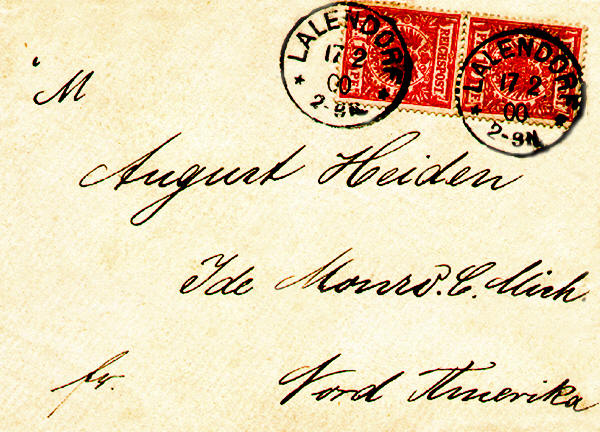 LALENDORF
17 2
00
2-3N.
REICHSPOST
LALENDORF
17 2
00
2-3N.
M
August Heiden
Ide Monro. C. Mich.
fr. Nord Amerika